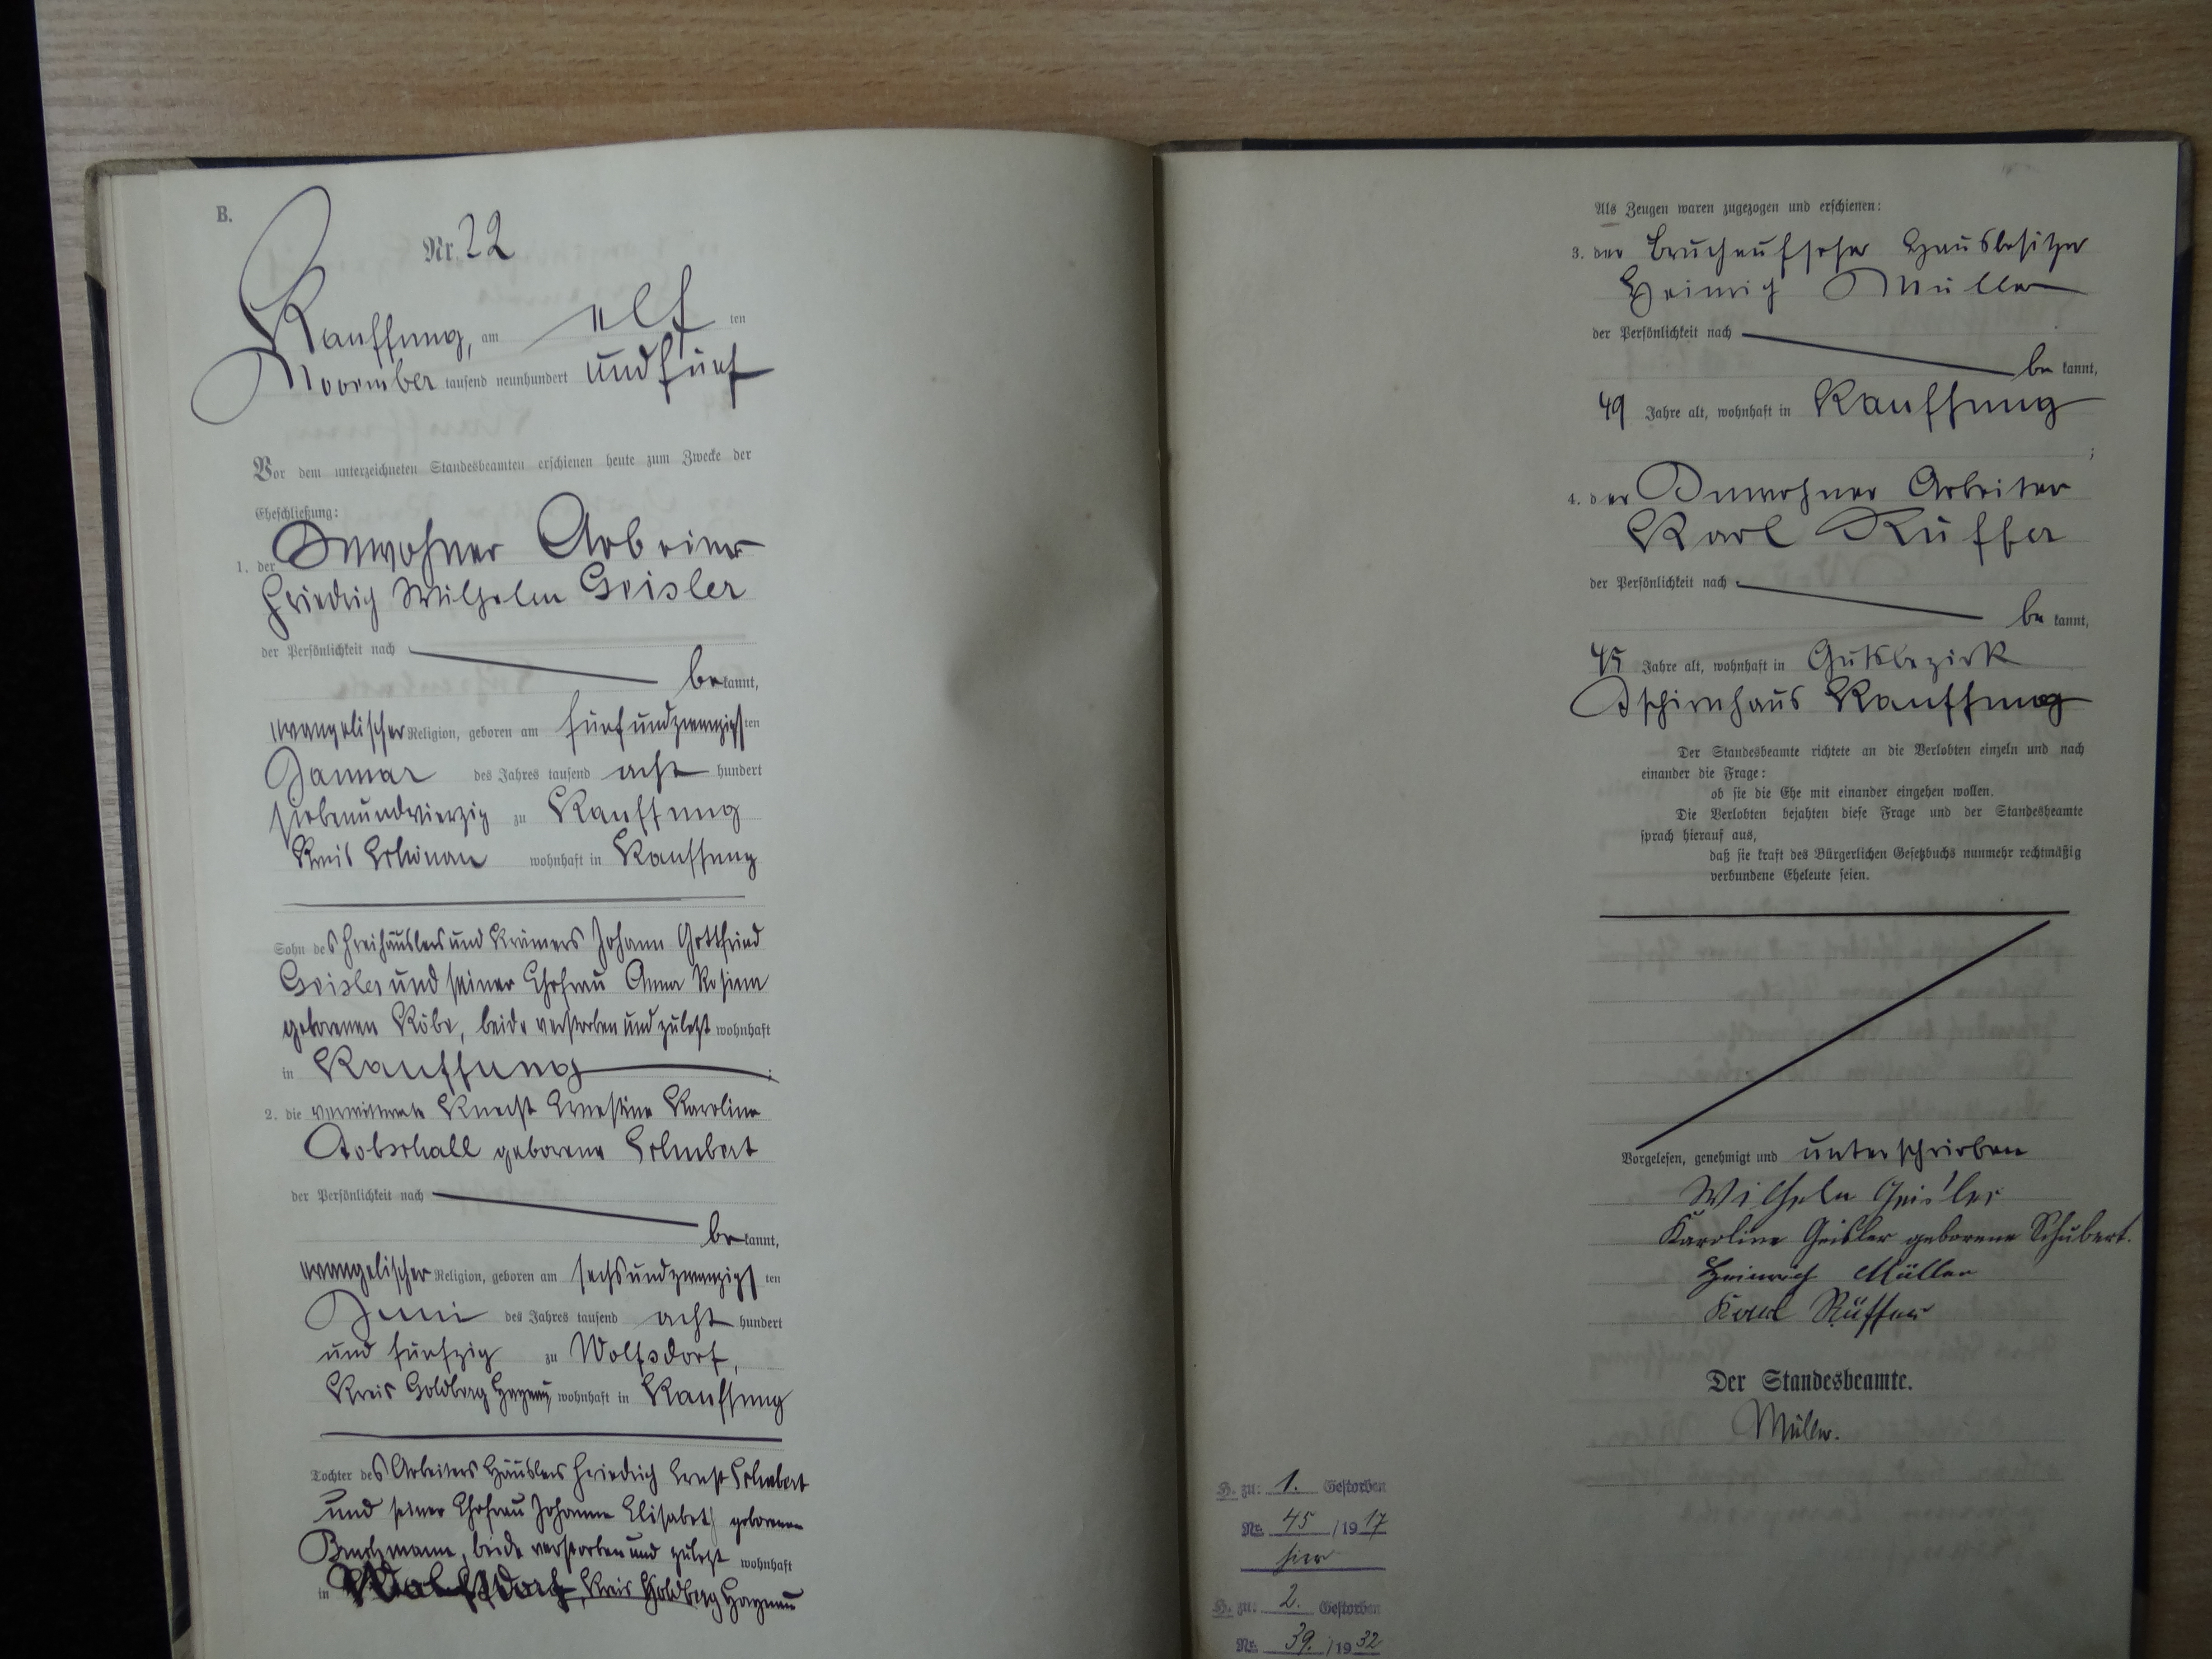 B.
Nr. 22
Kauffung, am elf ten
November tausend neunhundert und fünf
Vor dem unterzeichneten Standesbeamten erschienen heute zum Zwecke der
Eheschließung:
1. der Inwohner Arbeiter
Friedrich Wilhelm Geisler
der Persönlichkeit nach
be kannt,
evangelischer Religion, geboren am fünfundzwanzigsten
Januar des Jahres tausend acht hundert
siebenundvierzig zu Kauffung
Kreis Schönau wohnhaft in Kauffung
Sohn des Freihäuslers und Krämers Johann Gottfried
Geisler und seiner Ehefrau Anna Rosina
geborenen Köbe, beide verstorben und zuletzt wohnhaft
in Kauffung ;
2. die verwittwete Knecht Ernestine Karoline
Tobschall geborene Schubert
der Persönlichkeit nach
be kannt,
evangelischer Religion, geboren am sechsundzwanzigsten
Juni des Jahres tausend acht hundert
und fünfzig zu Wolfsdorf,
Kreis Goldberg Haynau, wohnhaft in Kauffung
Tochter des Arbeiters Häuslers Friedrich Ernst Schubert
und seiner Ehefrau Johanne Elisabeth geborenen
Bruchmann, beide verstorben und zuletzt wohnhaft
in Wolfsdorf, Kreis Goldberg Haynau
Als Zeugen waren zugezogen und erschienen:
3. der Bruchaufseher Hausbesitzer
Heinrich Müller
der Persönlichkeit nach
be kannt,
49 Jahre alt, wohnhaft in Kauffung
;
4. der Inwohner Arbeiter
Karl Rüffer
der Persönlichkeit nach
be kannt,
45 Jahre alt, wohnhaft in Gutsbezirk
Tschirnhaus Kauffung
Der Standesbeamte richtete an die Verlobten einzeln und nach
einander die Frage:
ob sie die Ehe mit einander eingehen wollen.
Die Verlobten bejahten diese Frage und der Standesbeamte
sprach hierauf aus,
daß sie kraft des Bürgerlichen Gesetzbuchs nunmehr rechtmäßig
verbundene Eheleute seien.
Vorgelesen, genehmigt und unterschrieben
Wilhelm Geisler
Karoline Geisler geborene Schubert.
Heinrich Müller
Karl Rüffer
Der Standesbeamte.
Müller.
H. zu: 1. Gestorben
Nr. 45 /1917
hier
H. zu: 2. Gestorben
Nr. 39. /1932